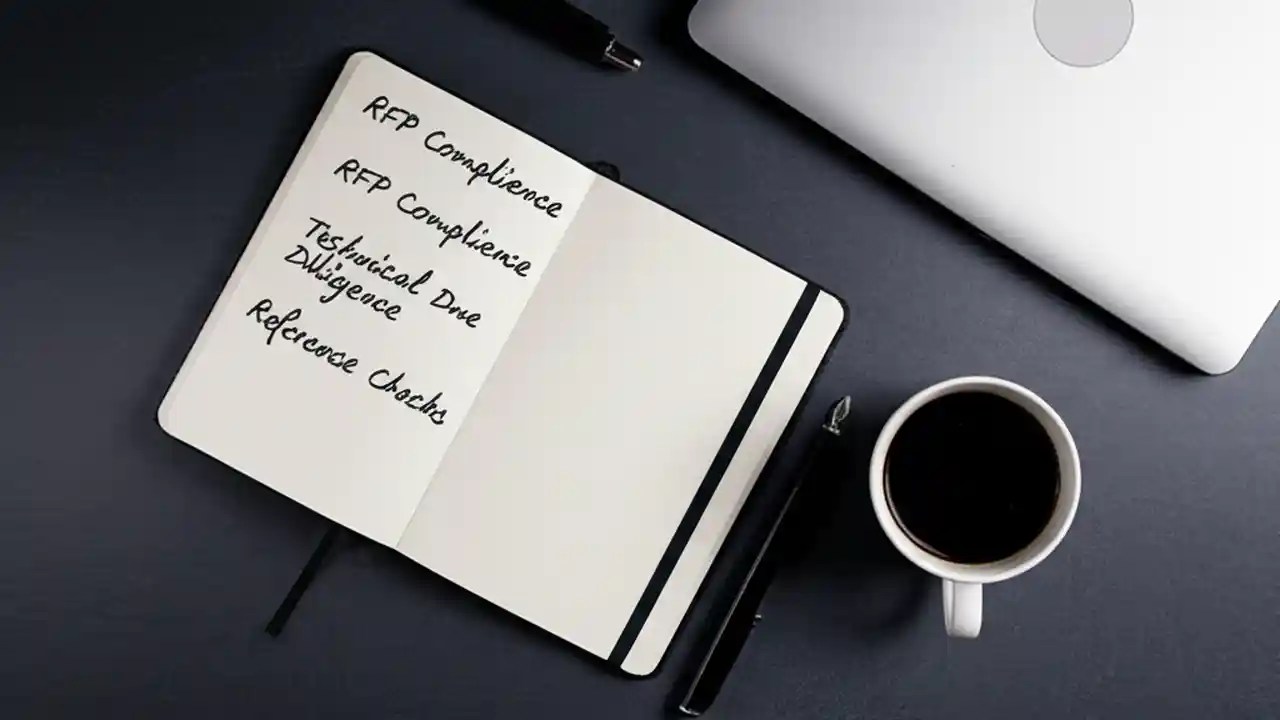 RFP Complience
RFP Complience
Teshnical Due
Dilligence
Reference Checks